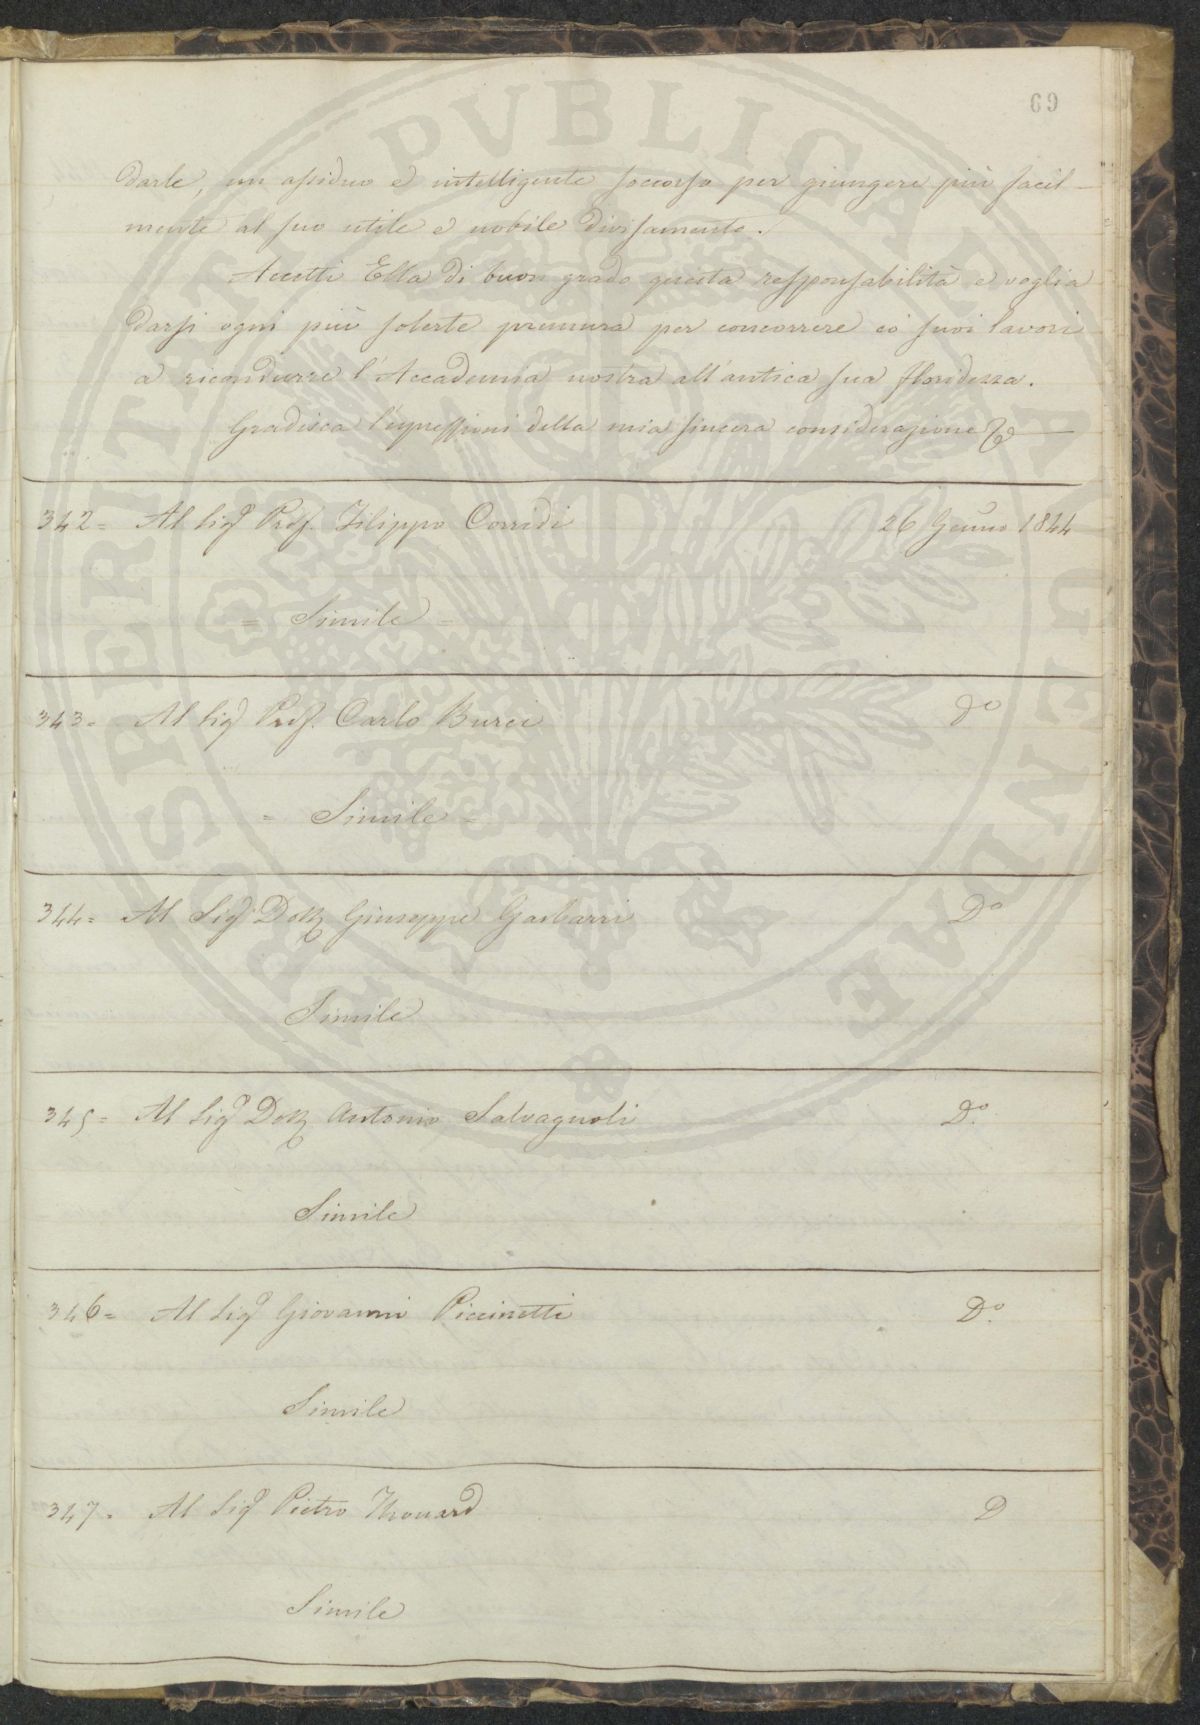 69
darle, un assiduo e intelligente soccorso per giungere più facil-
mente al suo utile e nobile divisamento.
Accetti Ella di buon grado questa responsabilità e voglia
darsi ogni più solerte premura per concorrere co' suoi lavori
a ricondurre l'Accademia nostra all'antica sua floridezza.
Gradisca l'espressioni della mia sincera considerazione
342= Al Sigr Prof. Filippo Corridi 26 Genno 1844
= Simile =
343= Al Sigr Prof. Carlo Burci do
= Simile =
344= Al Sigr Dott Giuseppe Gasbarri Do
Simile
345= Al Sigr Dott Antonio Salvagnoli Do.
Simile
346= Al Sigr Giovanni Piccinetti Do.
Simile
347= Al Sigr Pietro Thouard D
Simile
PROSPERITATI PVBLICAE AVGENDAE